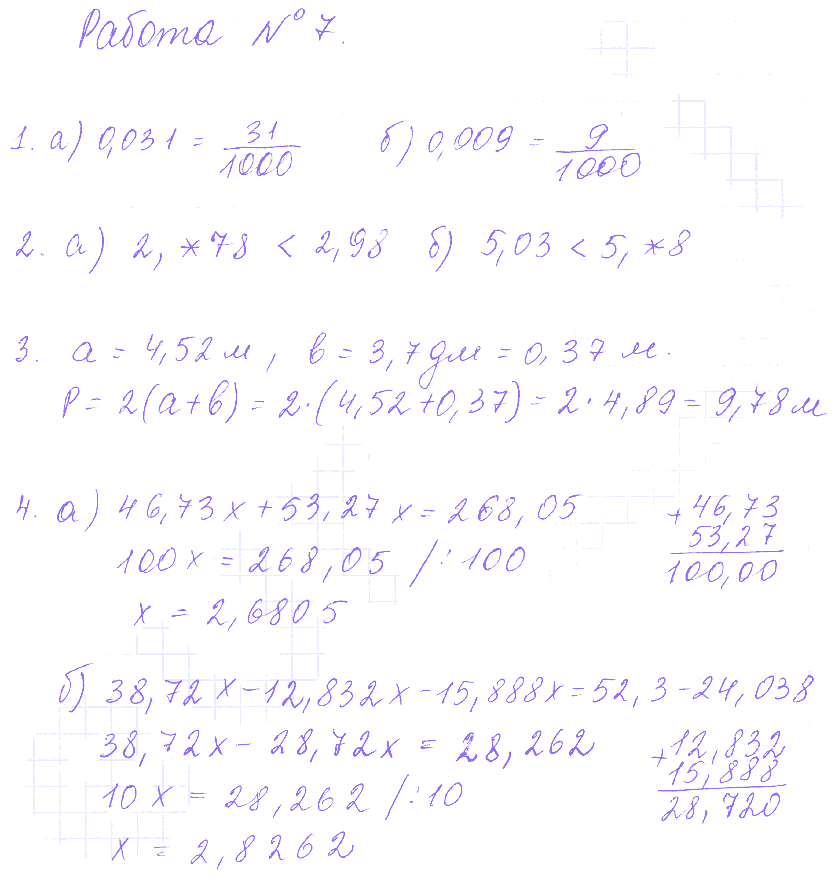 Работа № 7.
1. а) 0,031 = 31/1000 б) 0,009 = 9/1000
2. а) 2,*78 < 2,98 б) 5,03 < 5,*8
3. а = 4,52 м, в = 3,7 дм = 0,37 м.
Р = 2(а+в) = 2·(4,52+0,37) = 2·4,89 = 9,78 м
4. а) 46,73х + 53,27х = 268,05
100х = 268,05 /:100
х = 2,6805
+46,73
53,27
100,00
б) 38,72х - 12,832х - 15,888х = 52,3 - 24,038
38,72х - 28,72х = 28,262
10х = 28,262 /:10
х = 2,8262
+12,832
15,888
28,720